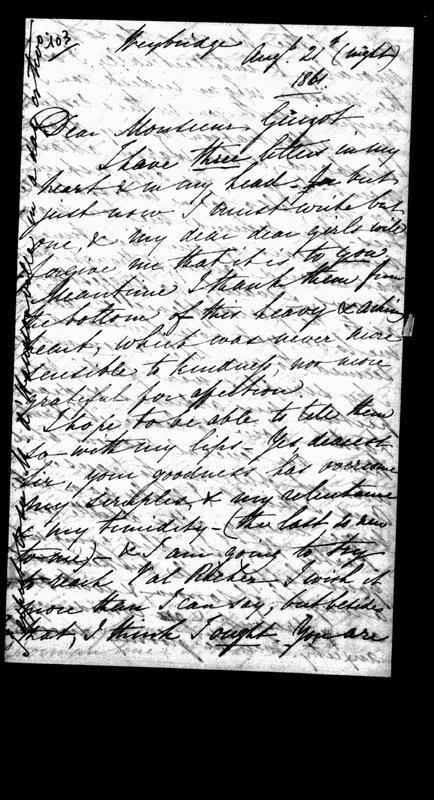 p 103
Weybridge
Augt. 21st (night)
1861.
Dear Monsieur Guizot
I have three letters in my
heart & in my head - but
just now I must write but
one, & my dear dear girls will
forgive me that it is to you
Meantime I thank them from
the bottom of this heavy & aching
heart, which was never more
sensible to kindness, nor more
grateful for affection.
I hope to be able to tell them
so with my lips - Yes, dearest
Sir, your goodness has overcome
my scruples, & my reluctance
& my timidity - (the last so new
to me) - & I am going to try
to reach Val Richer I wish it
more than I can say; but besides
that, I think I ought You are